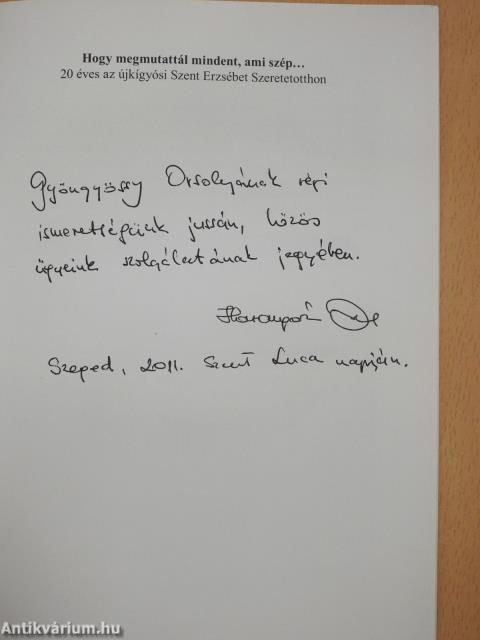 Hogy megmutattál mindent, ami szép…
20 éves az újkígyósi Szent Erzsébet Szeretetotthon
Gyöngyössy Orsolyának régi
ismeretségünk jussán, közös
ügyeink szolgálatának jegyében.
Szeged, 2011. Szent Luca napján.
Antikvárium.hu